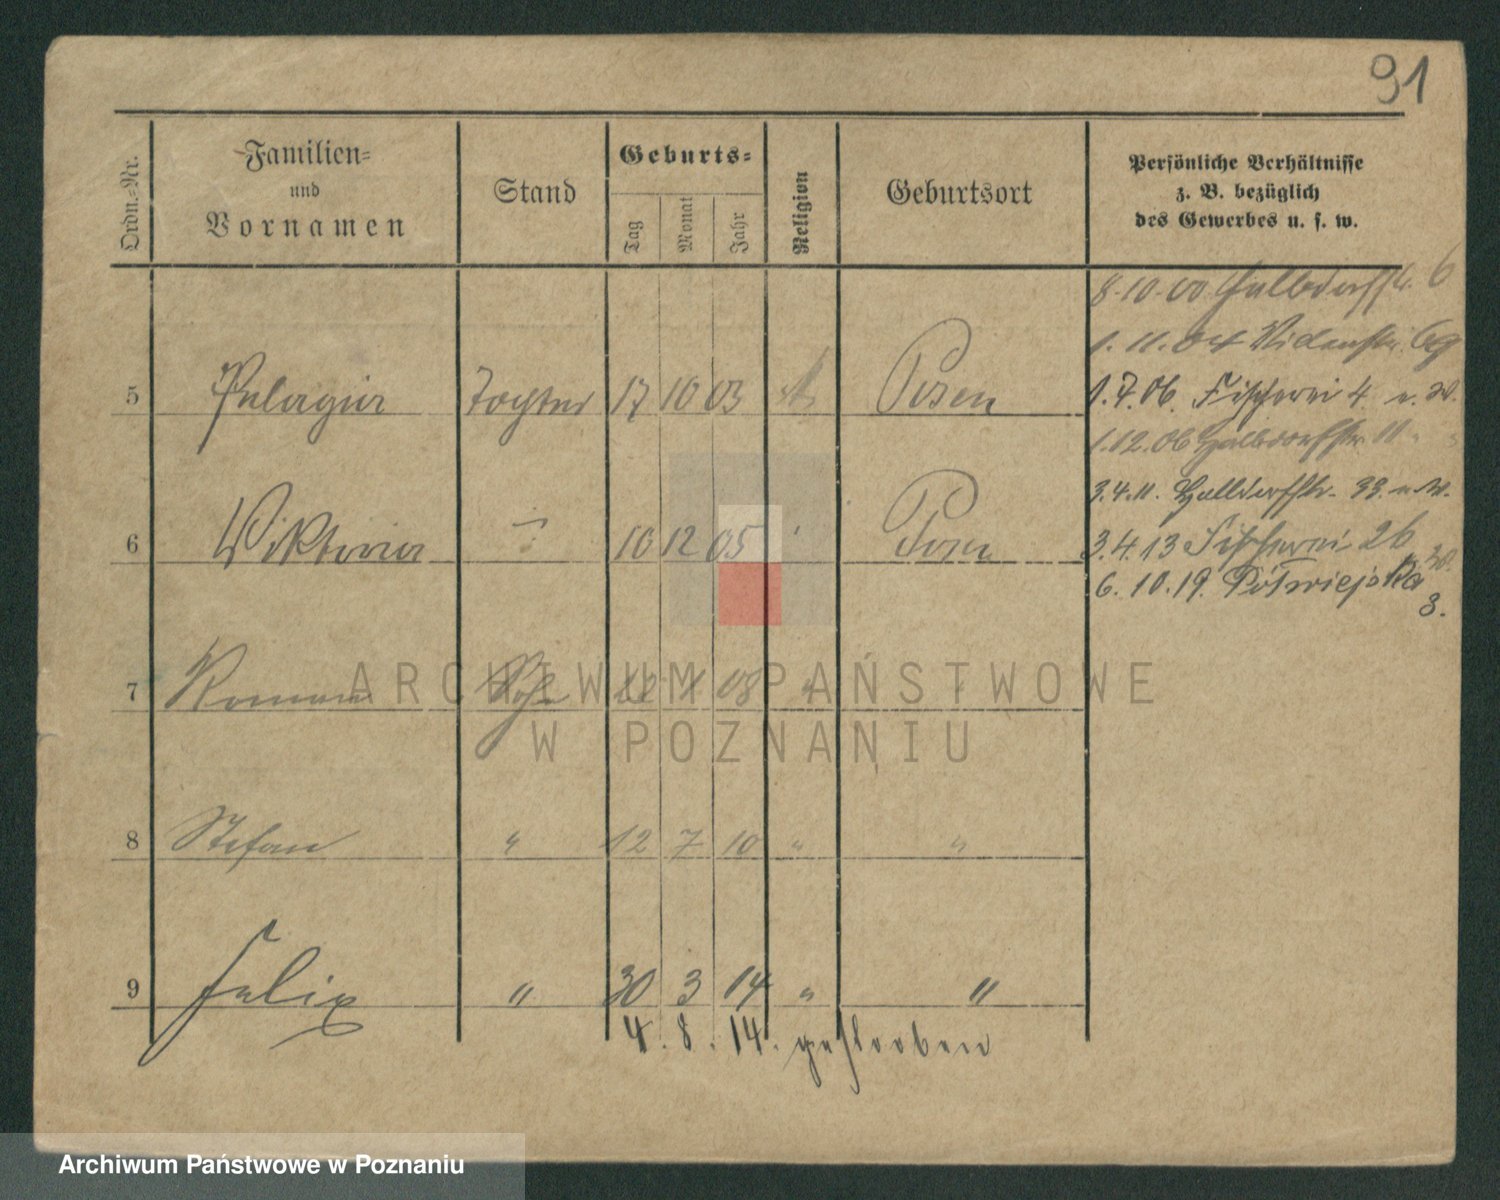 91
Ordn.-Nr.
Familien-
und
Vornamen
Stand
Geburts-
Tag
Monat
Jahr
Religion
Geburtsort
Persönliche Verhältnisse
z. B. bezüglich
des Gewerbes u. s. w.
8.10.00 Halbdorfstr. 6
1.11.04 69
5 Pelagia Tochter 17 10 03 Posen
1.7.06. Fischerei 4 n. W.
1.12.06 Halbdorfstr. 11
3.4.11. Halbdorfstr. 33. n. W.
6 Viktoria " 10 12 05 " Posen
3.4.13 Fischerei 26 W.
6.10.19. Półwiejska
3.
7 Roman Sohn 22 1 08 " "
8 Stefan " 12 7 10 " "
9 Felix " 30 3 14 " "
4. 8. 14. gestorben
ARCHIWUM PAŃSTWOWE
W POZNANIU
Archiwum Państwowe w Poznaniu